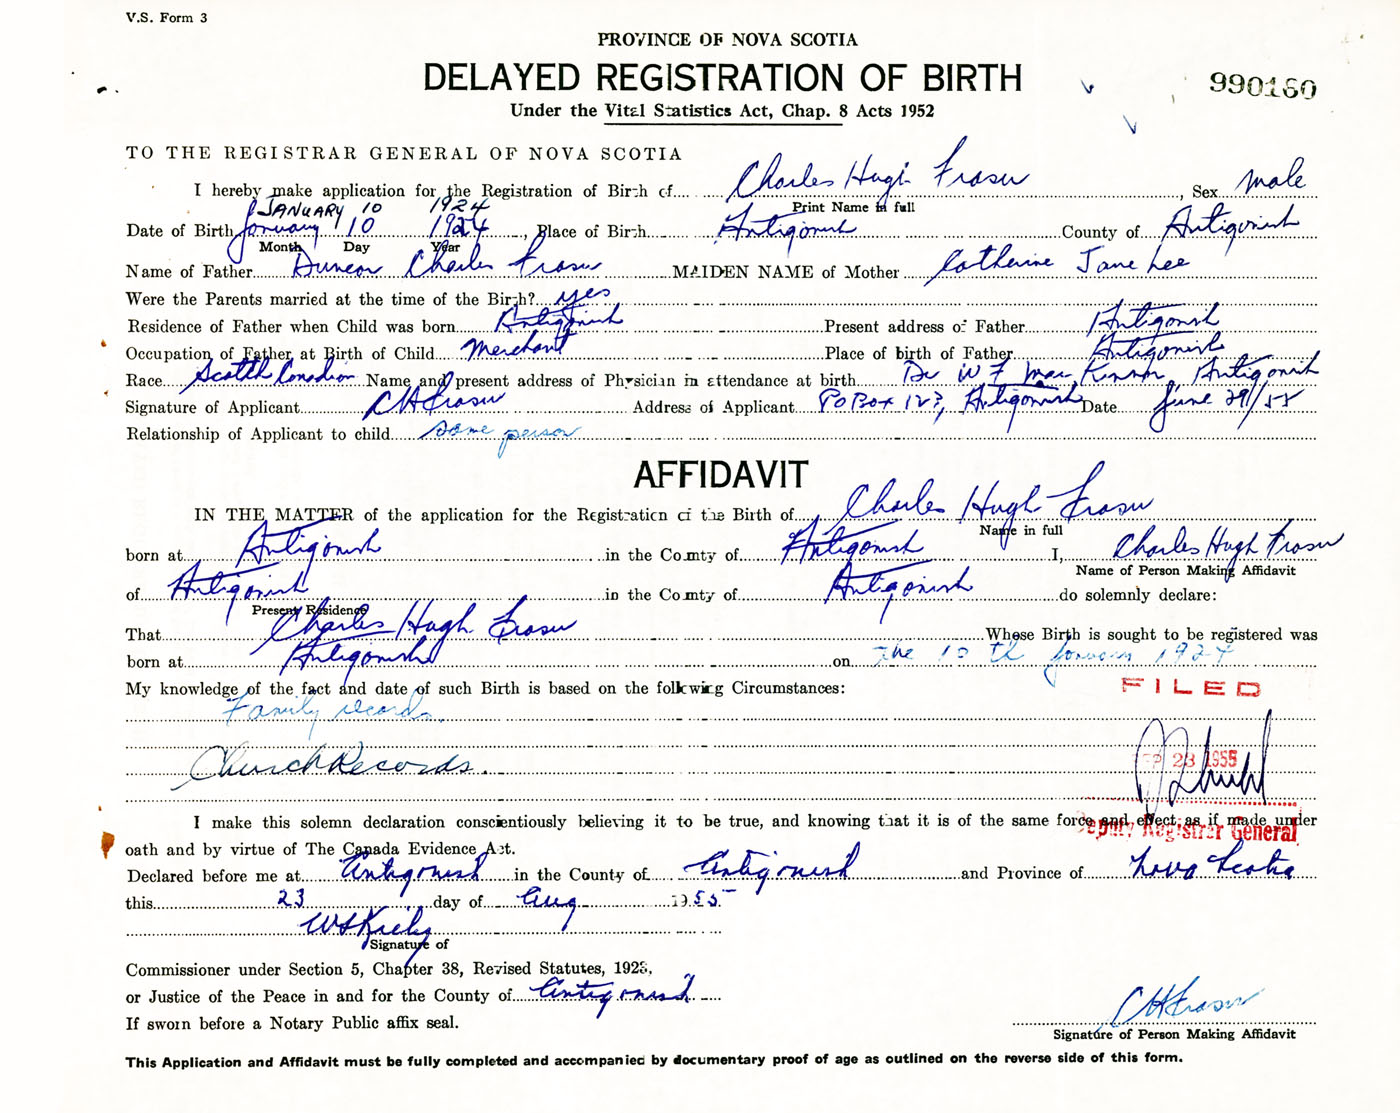 V.S. Form 3
PROVINCE OF NOVA SCOTIA
DELAYED REGISTRATION OF BIRTH
990160
Under the Vital Statistics Act, Chap. 8 Acts 1952
TO THE REGISTRAR GENERAL OF NOVA SCOTIA
I hereby make application for the Registration of Birth of Charles Hugh Fraser Sex male
Print Name in full
JANUARY 10 1924
Date of Birth January 10 1924, Place of Birth Antigonish County of Antigonish
Month Day Year
Name of Father Duncan Charles Fraser MAIDEN NAME of Mother Catherine Jane Lee
Were the Parents married at the time of the Birth? yes
Residence of Father when Child was born Antigonish Present address of Father Antigonish
Occupation of Father at Birth of Child Merchant Place of birth of Father Antigonish
Race Scotch Canadian Name and present address of Physician in attendance at birth Dr W F MacKinnon, Antigonish
Signature of Applicant CH Fraser Address of Applicant PO Box 123, Antigonish Date June 29/55
Relationship of Applicant to child same person
AFFIDAVIT
IN THE MATTER of the application for the Registration of the Birth of Charles Hugh Fraser
Name in full
born at Antigonish in the County of Antigonish I, Charles Hugh Fraser
Name of Person Making Affidavit
of Antigonish in the County of Antigonish do solemnly declare:
Present Residence
That Charles Hugh Fraser Whose Birth is sought to be registered was
born at Antigonish on the 10 th January 1924
My knowledge of the fact and date of such Birth is based on the following Circumstances:
FILED
Family records.
Church Records.
SEP 23 1955
I make this solemn declaration conscientiously believing it to be true, and knowing that it is of the same force and effect as if made under
Deputy Registrar General
oath and by virtue of The Canada Evidence Act.
Declared before me at Antigonish in the County of Antigonish and Province of Nova Scotia
this 23 day of Aug 1955
Signature of
Commissioner under Section 5, Chapter 38, Revised Statutes, 1923,
or Justice of the Peace in and for the County of Antigonish
If sworn before a Notary Public affix seal.
CH Fraser
Signature of Person Making Affidavit
This Application and Affidavit must be fully completed and accompanied by documentary proof of age as outlined on the reverse side of this form.